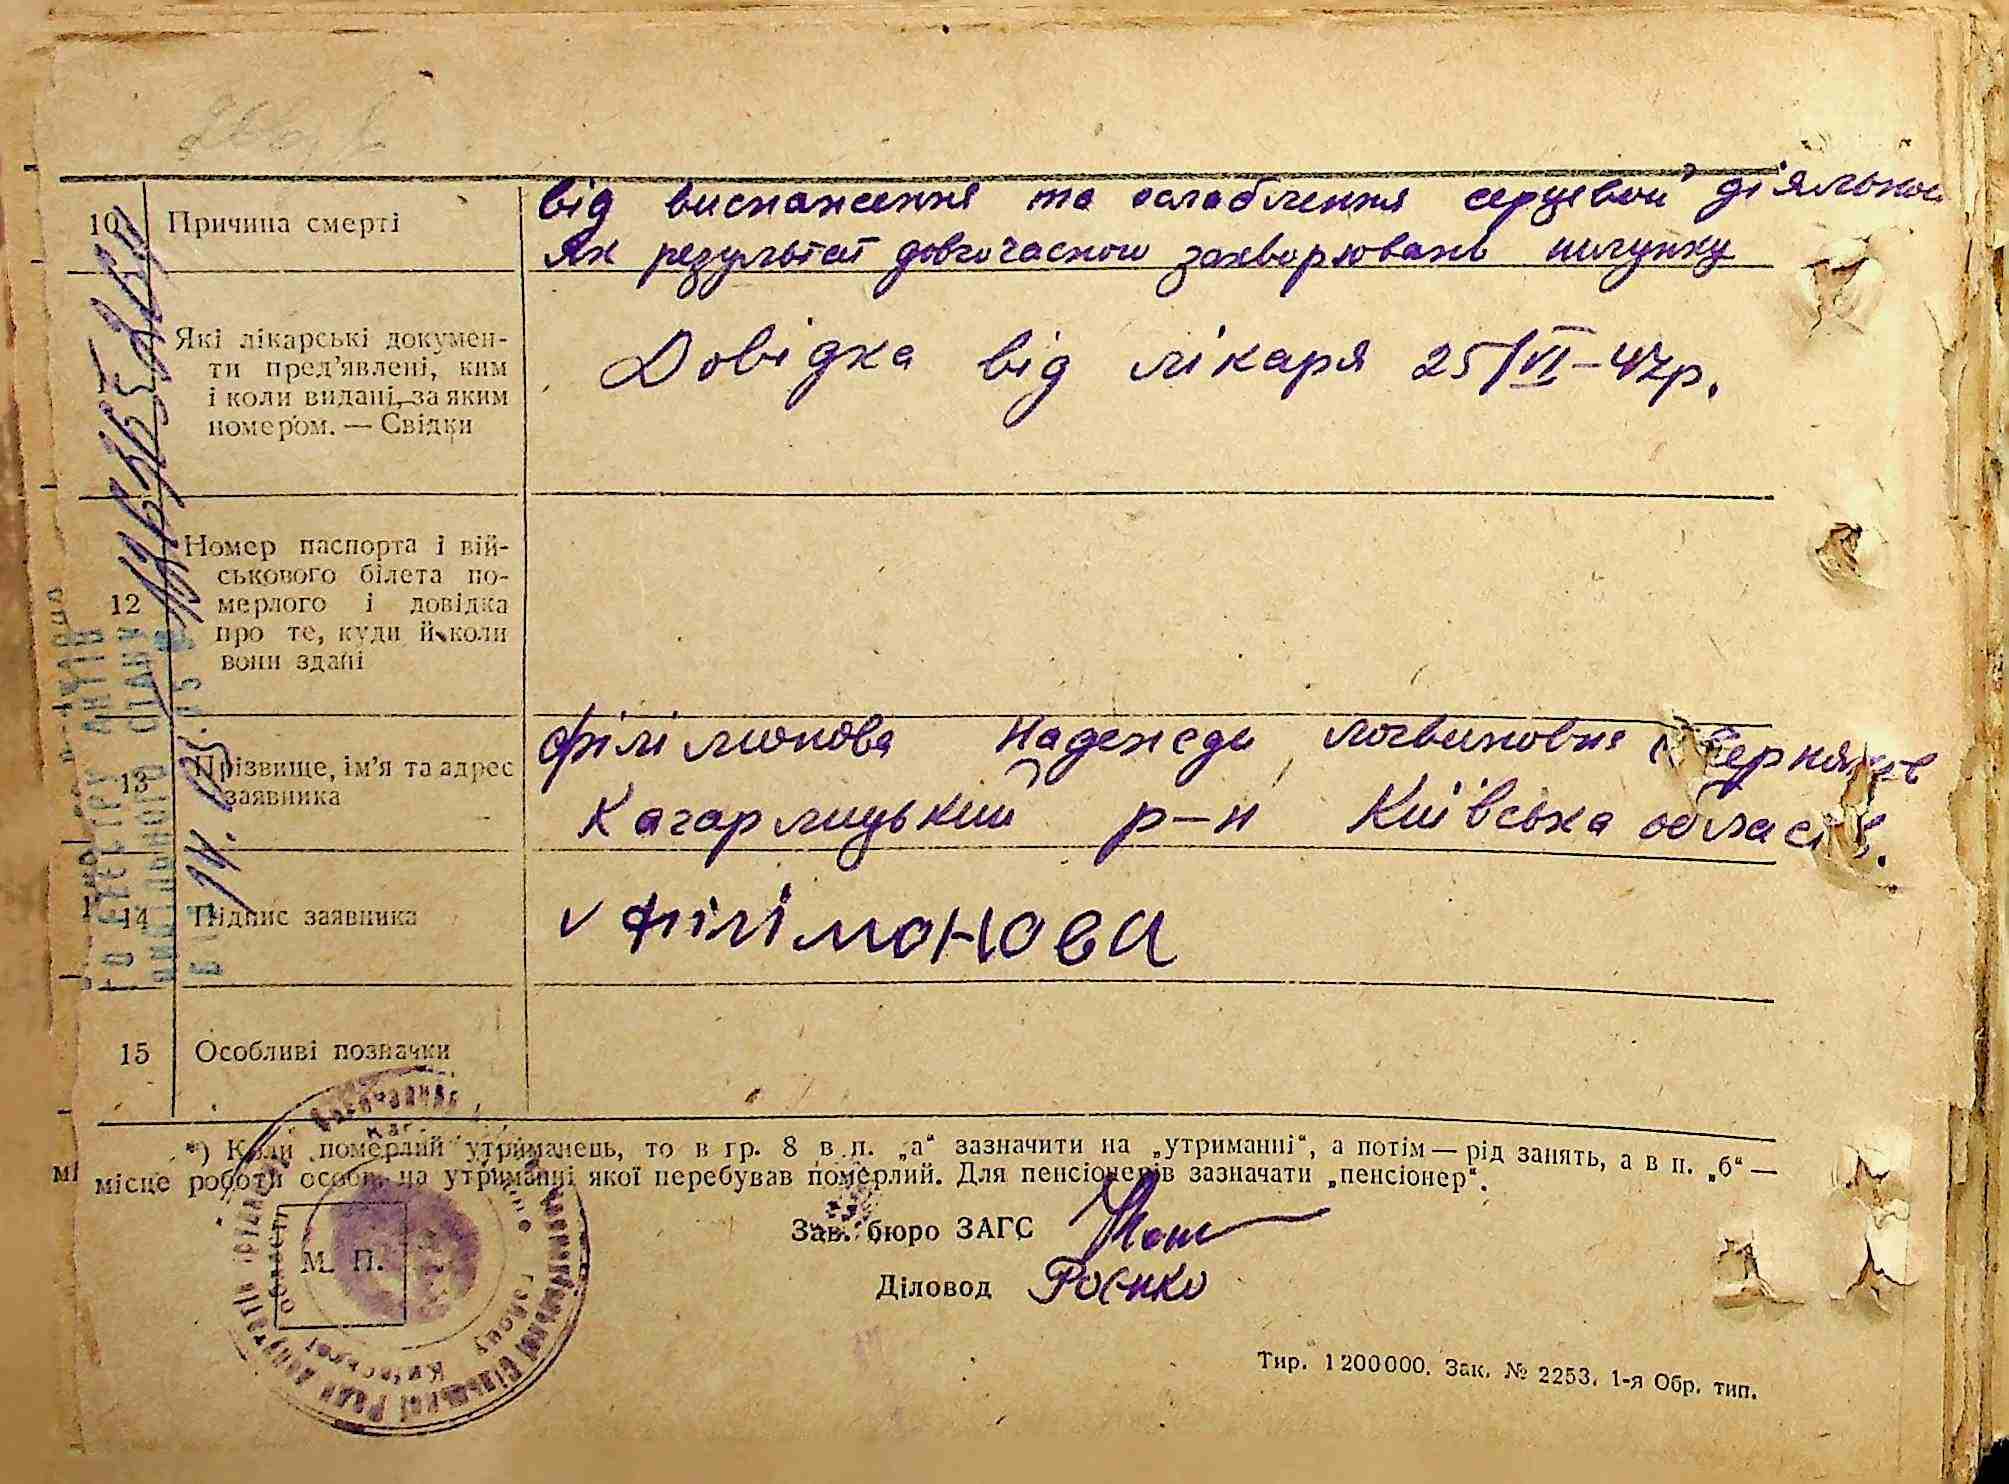 10
Причина смерті
від виснаження та ослаблення серцевої діяльнос
Як результат довгочасного захворювань шлунку
Які лікарські докумен-
ти пред'явлені, ким
і коли видані, за яким
номером. — Свідки
Довідка від лікаря 25/VI-47р.
12
Номер паспорта і вій-
ськового білета по-
мерлого і довідка
про те, куди й коли
вони здані
13
Прізвище, ім'я та адрес
заявника
Філімонова Надежда Логвиновна с.
Кагарлицький р-н Київська область.
14
Підпис заявника
v Філімонова
15
Особливі позначки
*) Коли померлий утриманець, то в гр. 8 в п. „а“ зазначити на „утриманні“, а потім — рід занять, а в п. „б“ —
місце роботи особи, на утриманні якої перебував померлий. Для пенсіонерів зазначати „пенсіонер“.
Зав. бюро ЗАГС
Діловод
М. П.
Тир. 1200000. Зак. № 2253. 1-я Обр. тип.